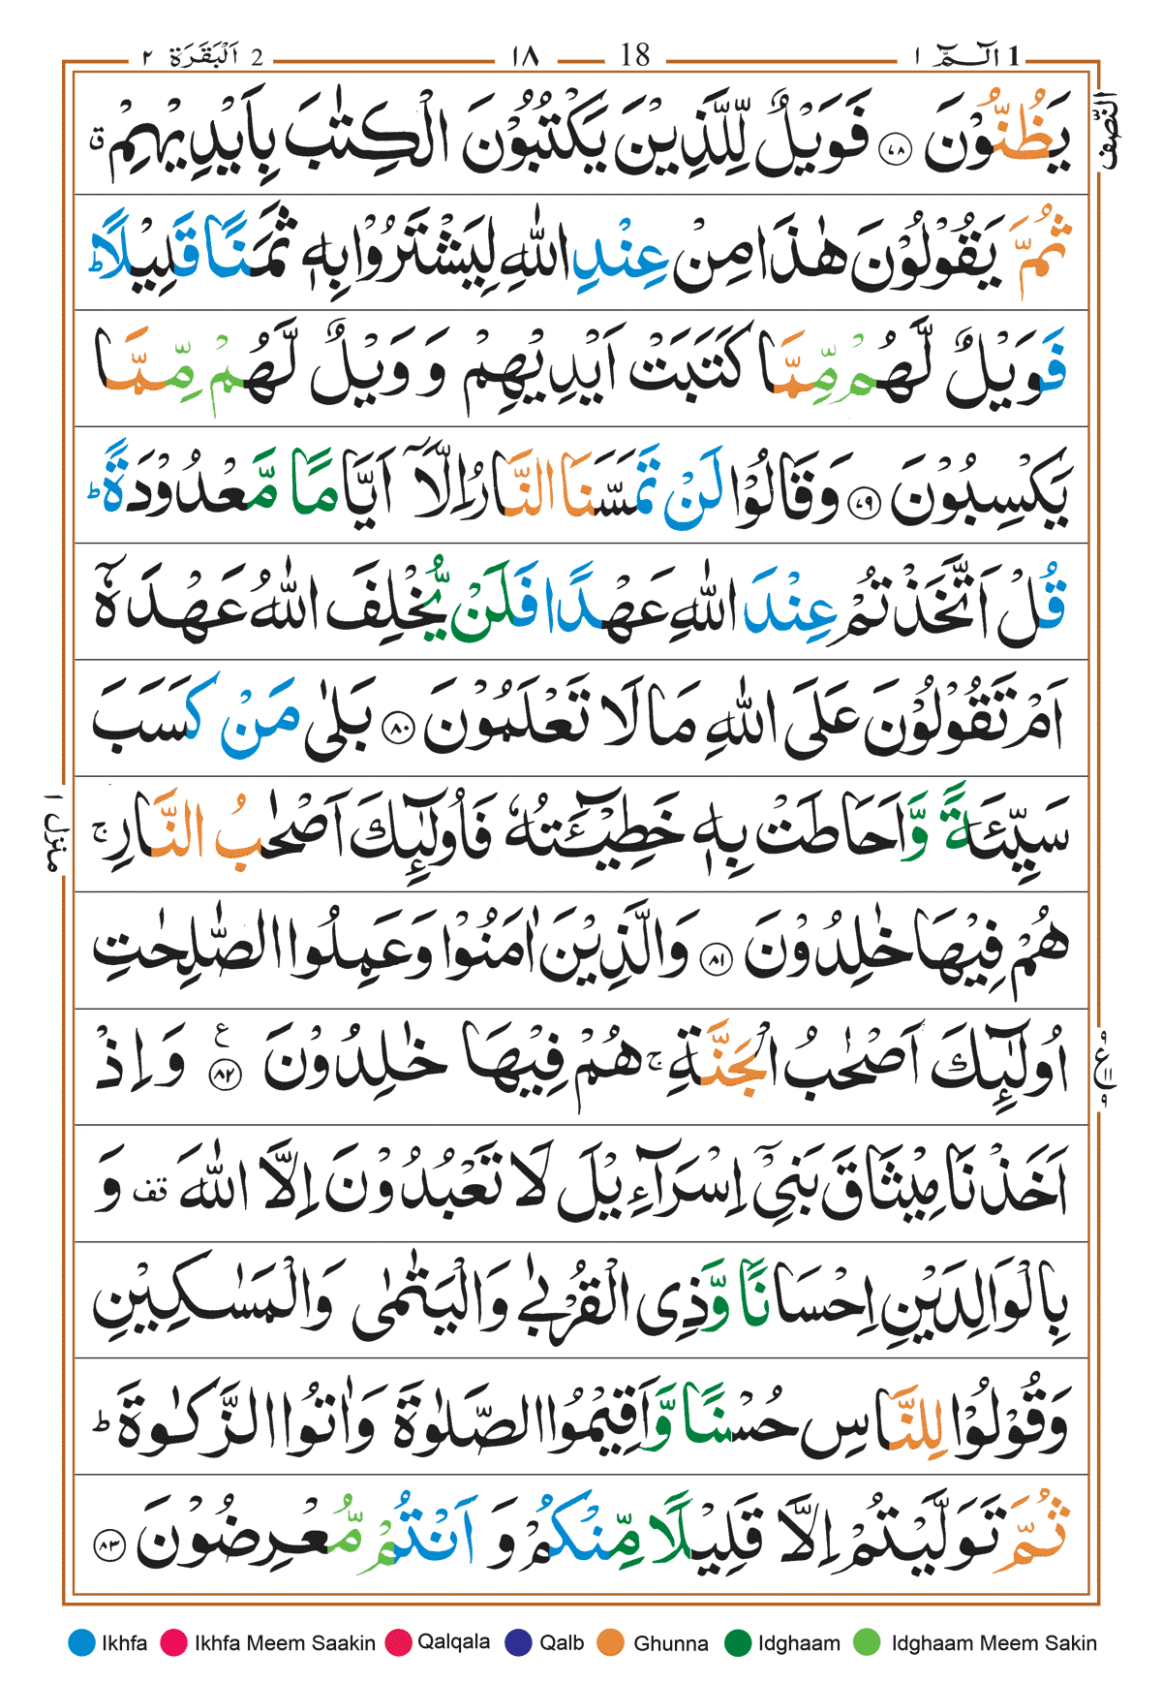 1 الٓـمّٓ ١ 18 ١٨ 2 اَلْبَقَرَة ٢
النّصف
يَظُنُّوْنَ ٧٨ فَوَيْلٌ لِّلَّذِيْنَ يَكْتُبُوْنَ الْكِتٰبَ بِاَيْدِيْهِمْ ق
ثُمَّ يَقُوْلُوْنَ هٰذَا مِنْ عِنْدِ اللّٰهِ لِيَشْتَرُوْا بِهٖ ثَمَنًا قَلِيْلًا ط
فَوَيْلٌ لَّهُمْ مِّمَّا كَتَبَتْ اَيْدِيْهِمْ وَ وَيْلٌ لَّهُمْ مِّمَّا
يَكْسِبُوْنَ ٧٩ وَقَالُوْا لَنْ تَمَسَّنَا النَّارُ اِلَّاۤ اَيَّامًا مَّعْدُوْدَةً ط
قُلْ اَتَّخَذْتُمْ عِنْدَ اللّٰهِ عَهْدًا فَلَنْ يُّخْلِفَ اللّٰهُ عَهْدَهٗۤ
اَمْ تَقُوْلُوْنَ عَلَى اللّٰهِ مَا لَا تَعْلَمُوْنَ ٨٠ بَلٰى مَنْ كَسَبَ
سَيِّئَةً وَّاَحَاطَتْ بِهٖ خَطِيْٓـَٔتُهٗ فَاُولٰٓئِكَ اَصْحٰبُ النَّارِ ج
منزل ١
هُمْ فِيْهَا خٰلِدُوْنَ ٨١ وَالَّذِيْنَ اٰمَنُوْا وَعَمِلُوا الصّٰلِحٰتِ
اُولٰٓئِكَ اَصْحٰبُ الْجَنَّةِ ج هُمْ فِيْهَا خٰلِدُوْنَ ٨٢ ع وَاِذْ
اَخَذْنَا مِيْثَاقَ بَنِيْۤ اِسْرَآءِيْلَ لَا تَعْبُدُوْنَ اِلَّا اللّٰهَ قف وَ
بِالْوَالِدَيْنِ اِحْسَانًا وَّذِى الْقُرْبٰى وَالْيَتٰمٰى وَالْمَسٰكِيْنِ
وَقُوْلُوْا لِلنَّاسِ حُسْنًا وَّاَقِيْمُوا الصَّلٰوةَ وَاٰتُوا الزَّكٰوةَ ط
ثُمَّ تَوَلَّيْتُمْ اِلَّا قَلِيْلًا مِّنْكُمْ وَ اَنْتُمْ مُّعْرِضُوْنَ ٨٣
Ikhfa Ikhfa Meem Saakin Qalqala Qalb Ghunna Idghaam Idghaam Meem Sakin